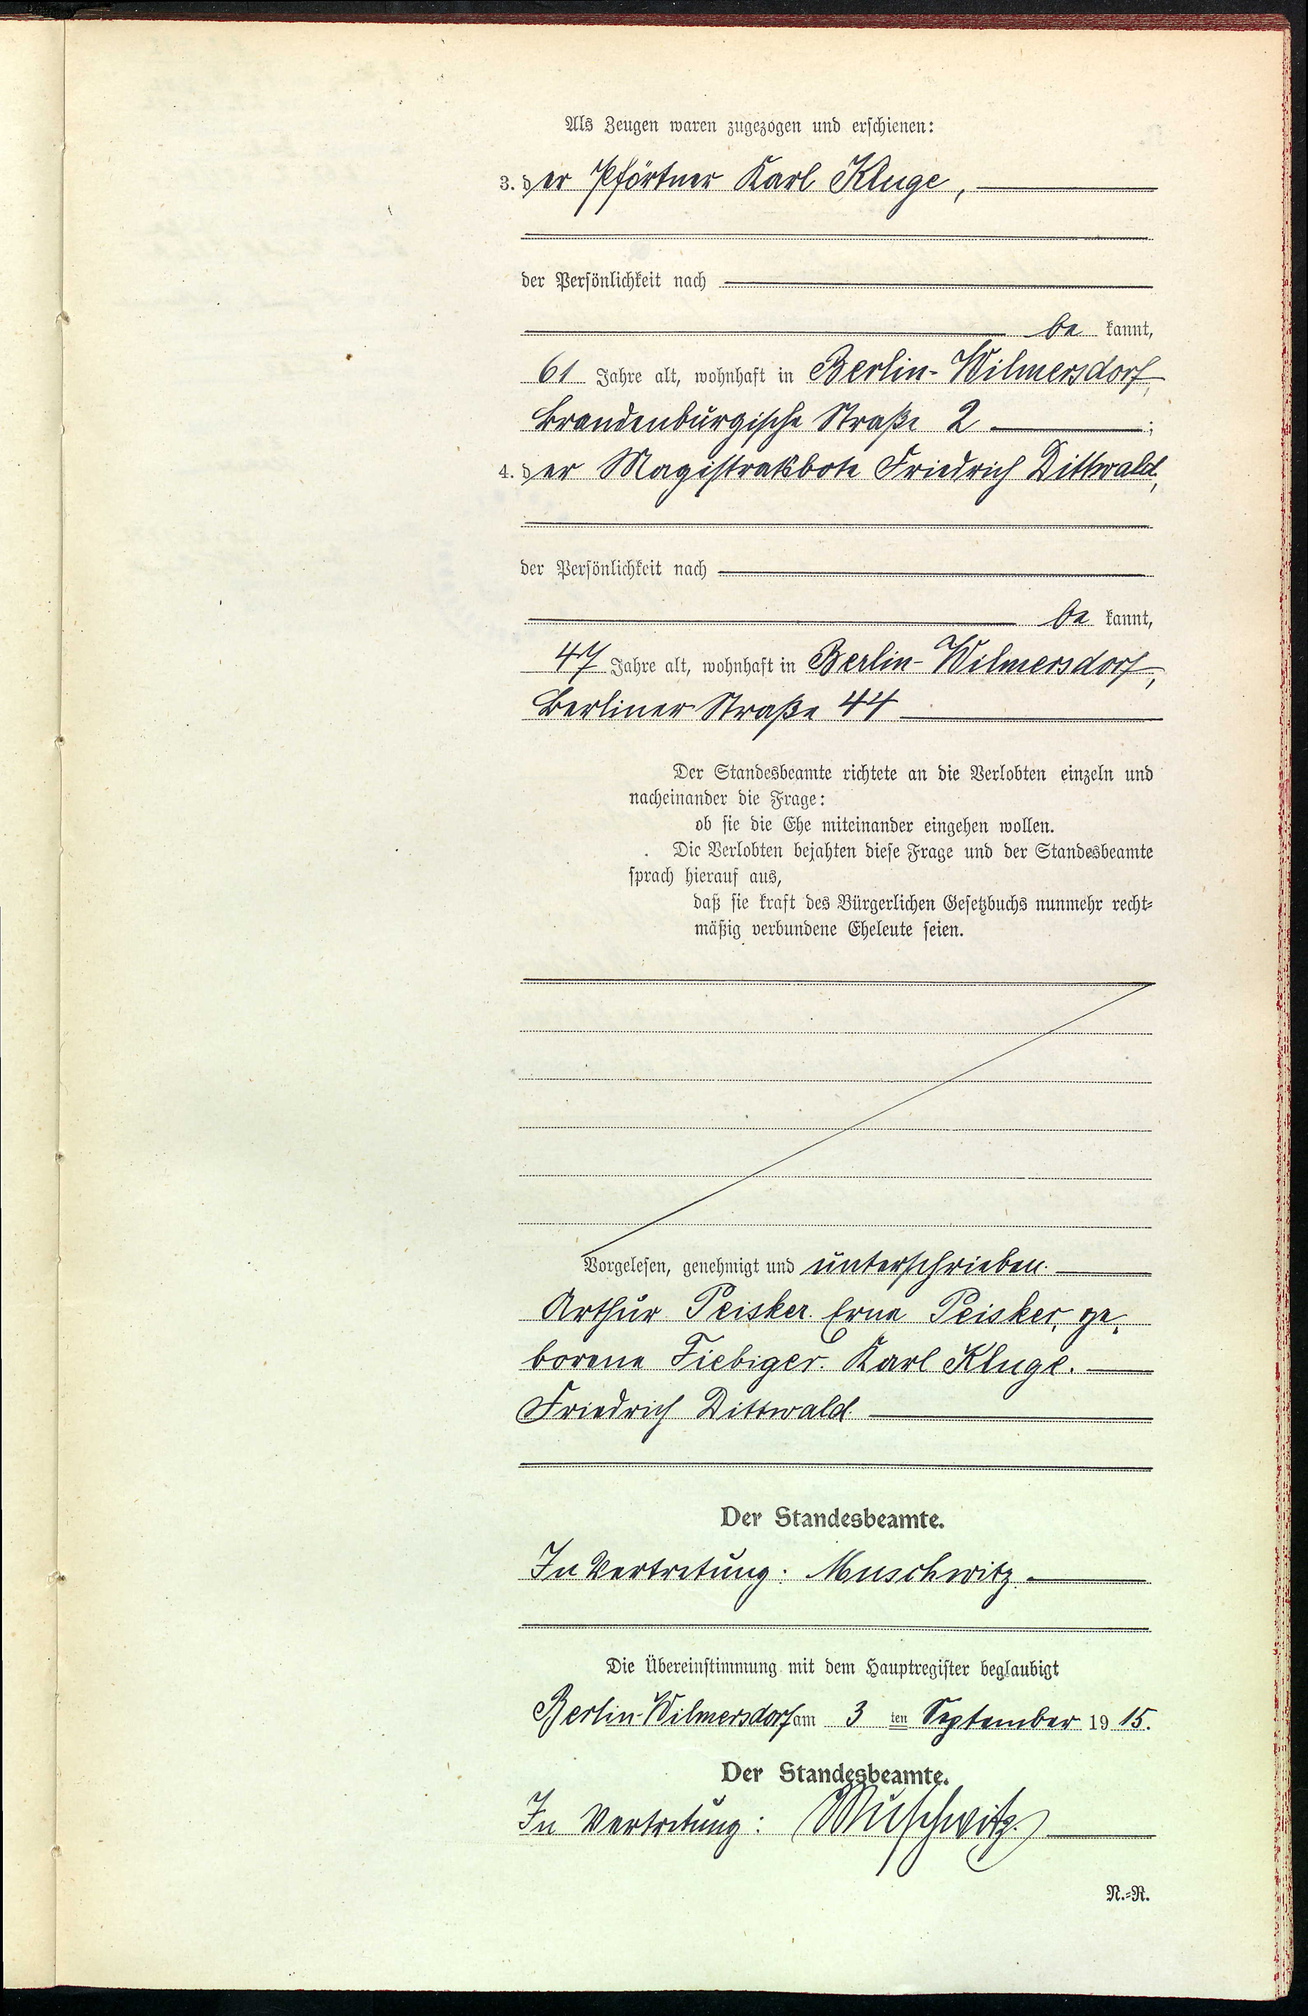 Als Zeugen waren zugezogen und erschienen:
3. der Pförtner Karl Kluge,
der Persönlichkeit nach
be kannt,
61 Jahre alt, wohnhaft in Berlin-Wilmersdorf,
Brandenburgische Straße 2 ;
4. der Magistratsbote Friedrich Dittwald,
der Persönlichkeit nach
be kannt,
47 Jahre alt, wohnhaft in Berlin-Wilmersdorf,
Berliner Straße 44
Der Standesbeamte richtete an die Verlobten einzeln und
nacheinander die Frage:
ob sie die Ehe miteinander eingehen wollen.
Die Verlobten bejahten diese Frage und der Standesbeamte
sprach hierauf aus,
daß sie kraft des Bürgerlichen Gesetzbuchs nunmehr recht-
mäßig verbundene Eheleute seien.
Vorgelesen, genehmigt und unterschrieben.
Arthur Peisker. Erna Peisker, ge-
borene Fiebiger. Karl Kluge.
Friedrich Dittwald.
Der Standesbeamte.
In Vertretung: Muschwitz.
Die Übereinstimmung mit dem Hauptregister beglaubigt
Berlin-Wilmersdorf am 3 ten September 19 15.
Der Standesbeamte.
In Vertretung: Muschwitz.
N.-R.